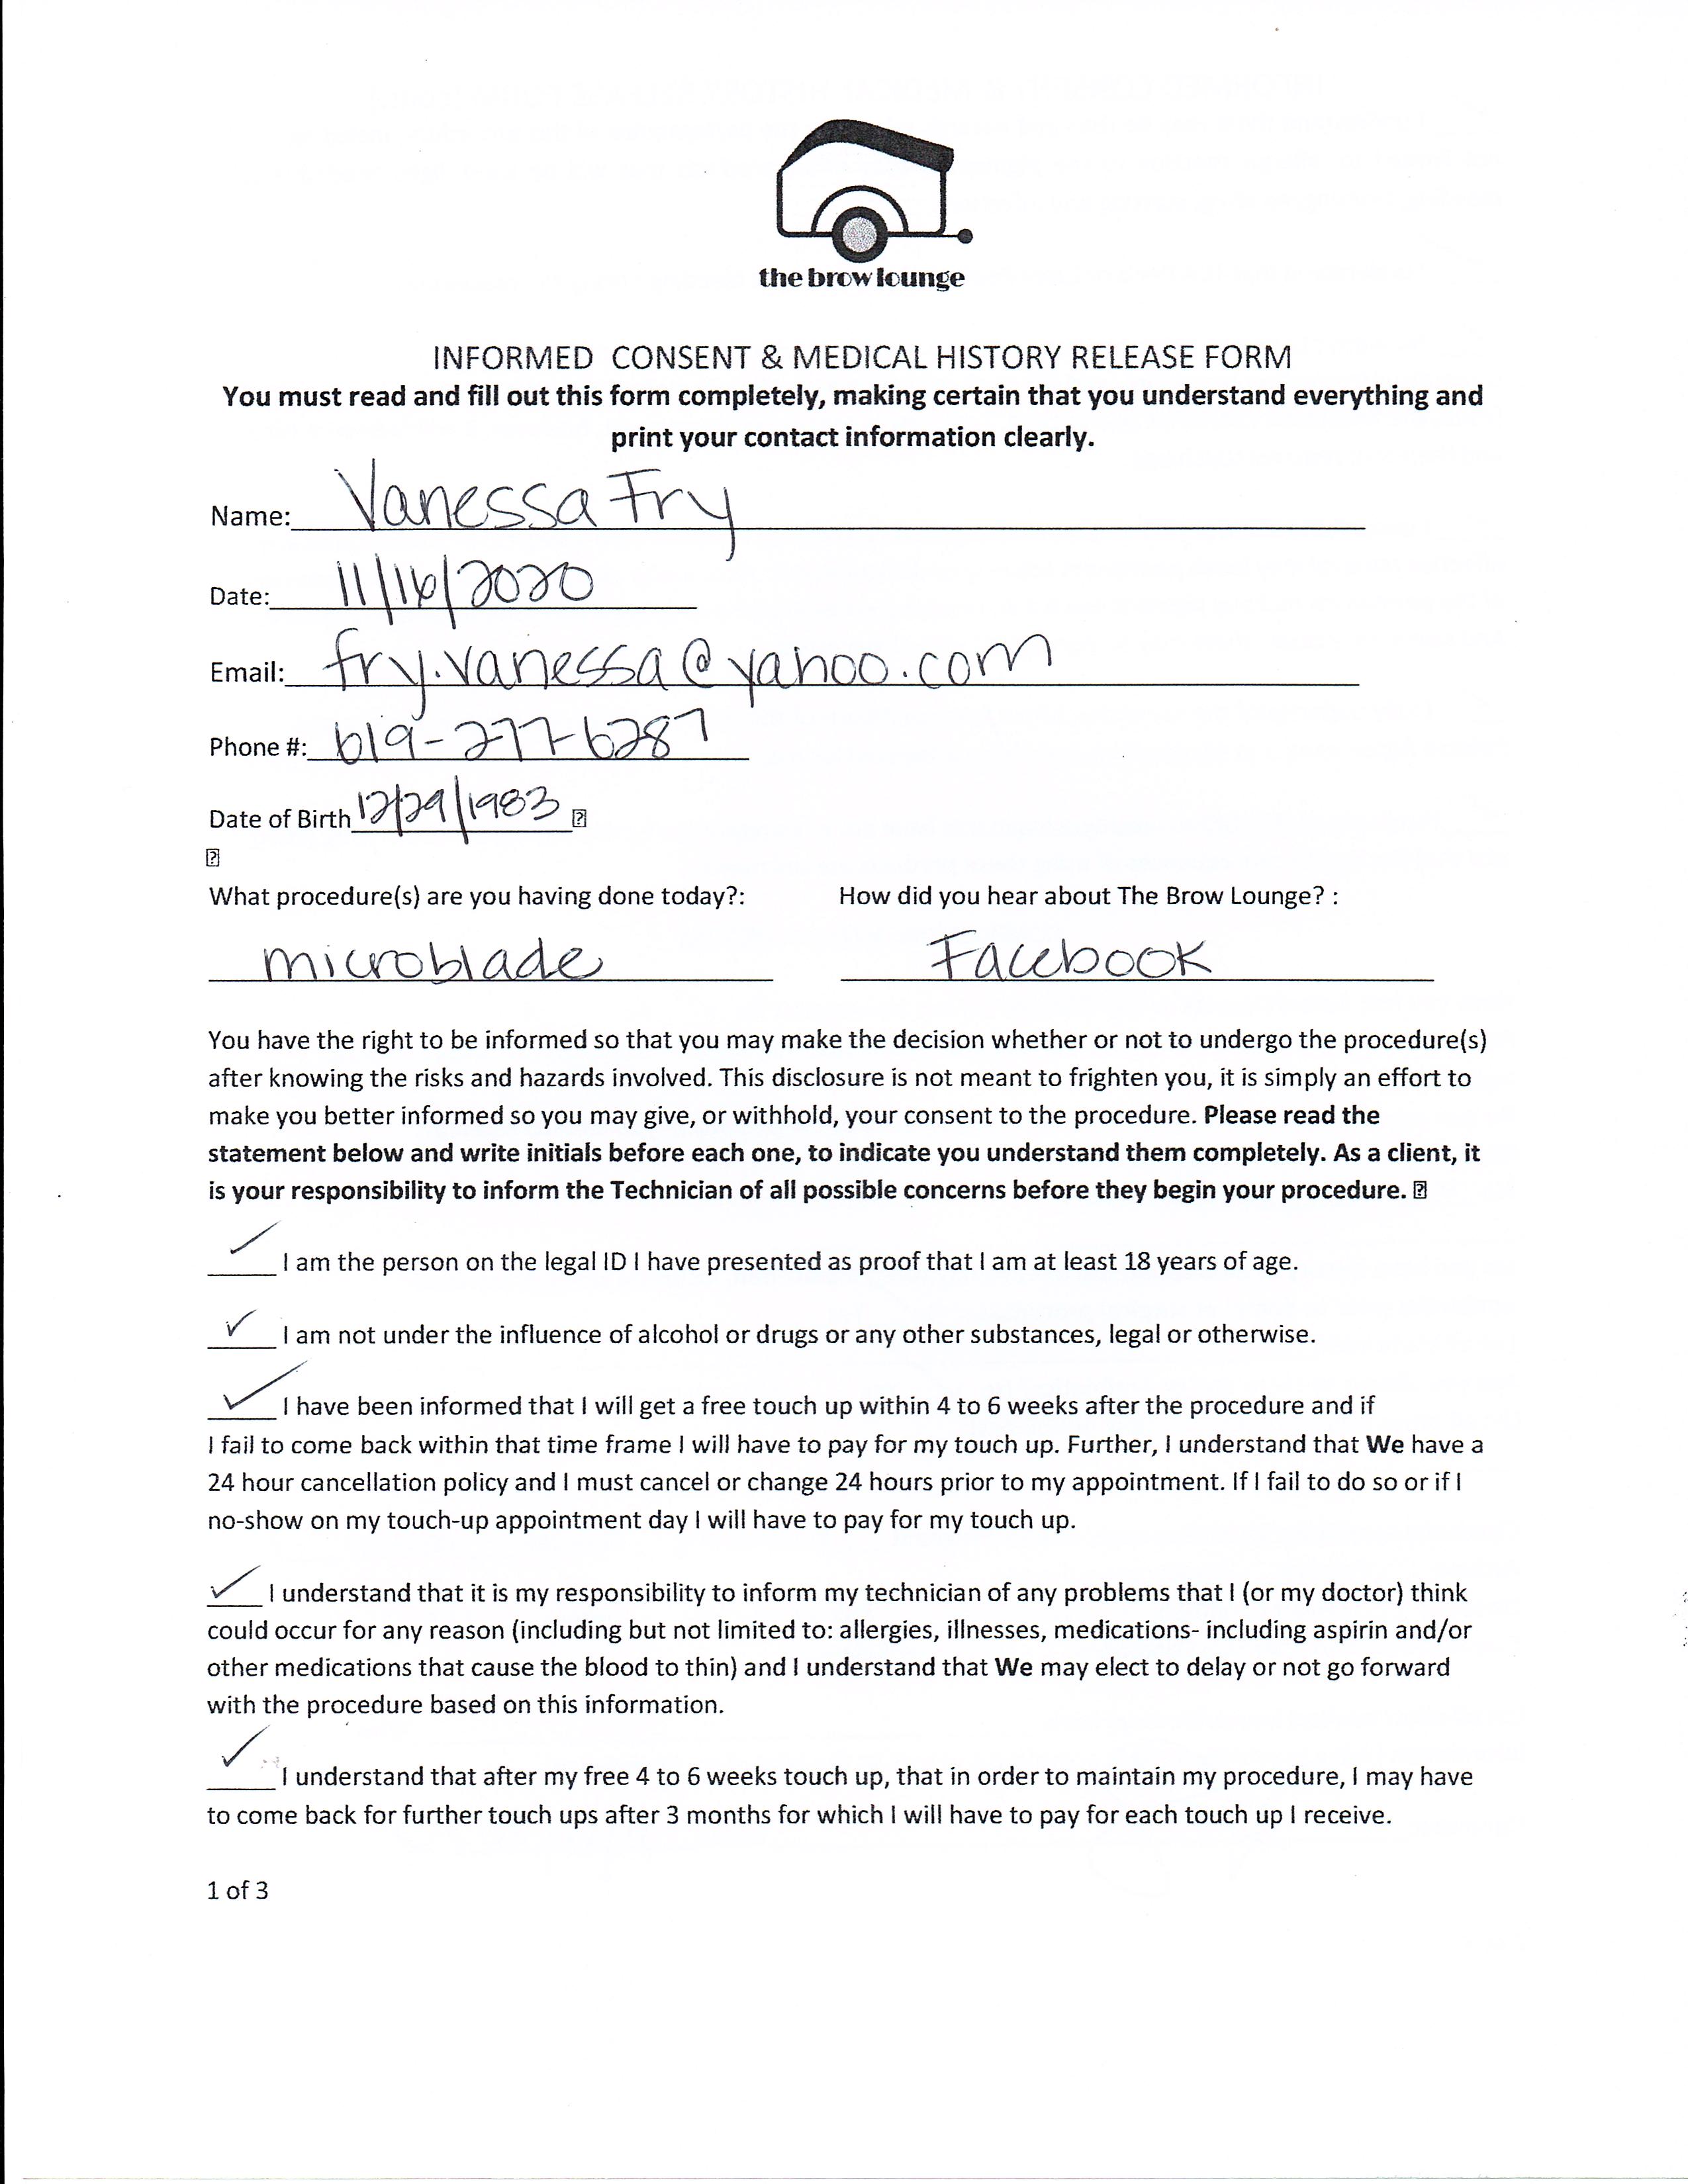 the brow lounge
INFORMED CONSENT & MEDICAL HISTORY RELEASE FORM
You must read and fill out this form completely, making certain that you understand everything and
print your contact information clearly.
Name: Vanessa Fry
Date: 11/16/2020
Email: fry.vanessa@yahoo.com
Phone #: 619-277-6287
Date of Birth 12/29/1983
What procedure(s) are you having done today?: How did you hear about The Brow Lounge? :
microblade Facebook
You have the right to be informed so that you may make the decision whether or not to undergo the procedure(s)
after knowing the risks and hazards involved. This disclosure is not meant to frighten you, it is simply an effort to
make you better informed so you may give, or withhold, your consent to the procedure. Please read the
statement below and write initials before each one, to indicate you understand them completely. As a client, it
is your responsibility to inform the Technician of all possible concerns before they begin your procedure.
✓ I am the person on the legal ID I have presented as proof that I am at least 18 years of age.
✓ I am not under the influence of alcohol or drugs or any other substances, legal or otherwise.
✓ I have been informed that I will get a free touch up within 4 to 6 weeks after the procedure and if
I fail to come back within that time frame I will have to pay for my touch up. Further, I understand that We have a
24 hour cancellation policy and I must cancel or change 24 hours prior to my appointment. If I fail to do so or if I
no-show on my touch-up appointment day I will have to pay for my touch up.
✓ I understand that it is my responsibility to inform my technician of any problems that I (or my doctor) think
could occur for any reason (including but not limited to: allergies, illnesses, medications- including aspirin and/or
other medications that cause the blood to thin) and I understand that We may elect to delay or not go forward
with the procedure based on this information.
✓ I understand that after my free 4 to 6 weeks touch up, that in order to maintain my procedure, I may have
to come back for further touch ups after 3 months for which I will have to pay for each touch up I receive.
1 of 3